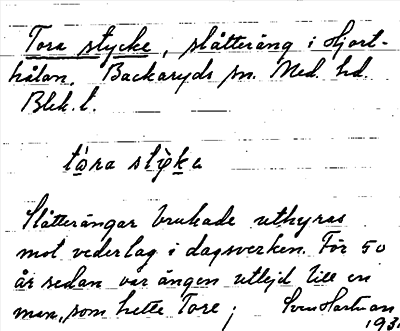 Tora stycke, slåtteräng i Hjort-
hålan. Backaryds sn. Med. hd.
Blek. l.
tòra stỳke
Slåtterängar brukade uthyras
mot vederlag i dagsverken. För 50
år sedan var ängen utlejd till en
man, som hette Tore; Sven Hartman
193